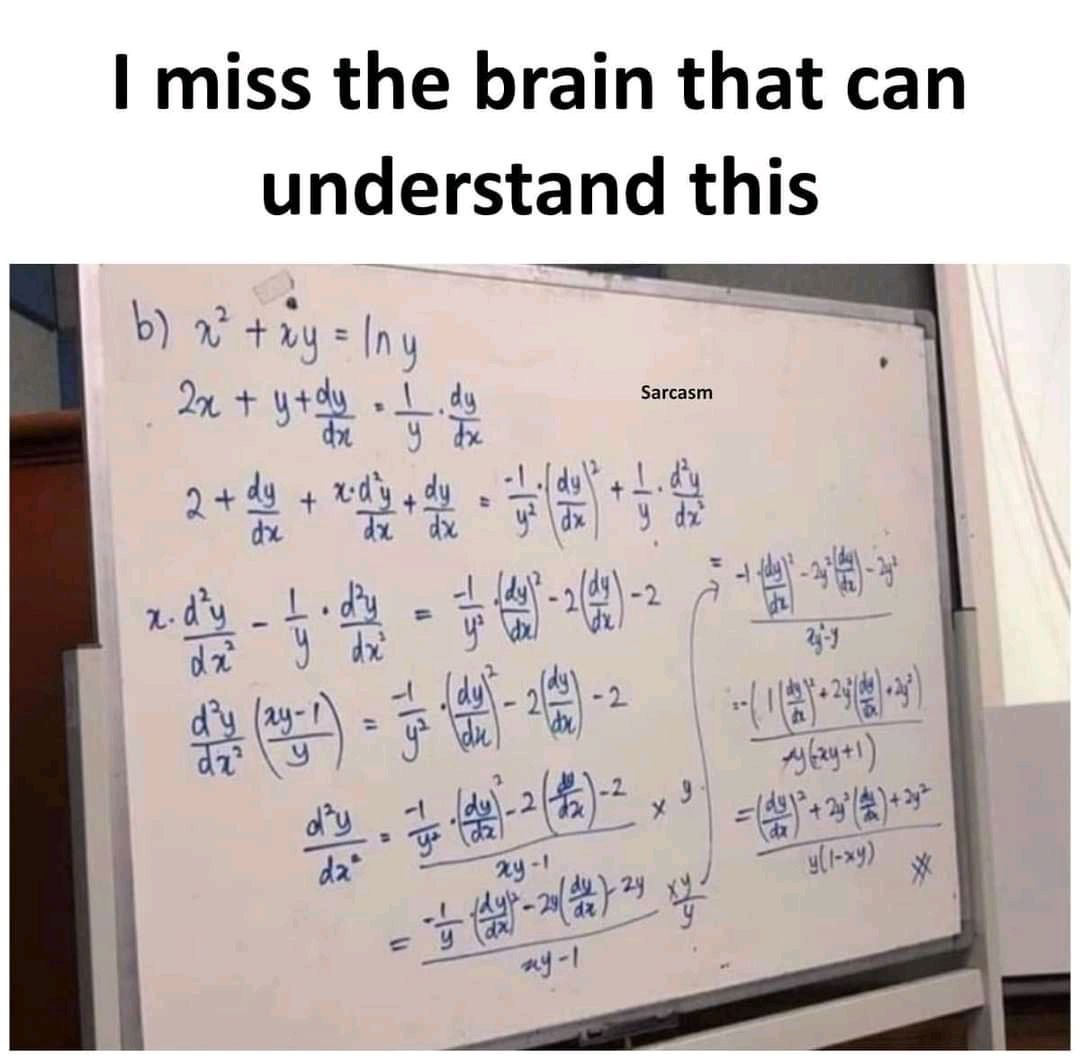 I miss the brain that can
understand this
b) x² + xy = ln y
Sarcasm
2x + y + dy/dx = 1/y · dy/dx
2 + dy/dx + x·d²y/dx + dy/dx = -1/y² · (dy/dx)² + 1/y · d²y/dx²
x · d²y/dx² - 1/y · d²y/dx² = -1/y² · (dy/dx)² - 2(dy/dx) - 2
d²y/dx² (xy-1/y) = -1/y² · (dy/dx)² - 2(dy/dx) - 2
d²y/dx² = -1/y² · (dy/dx)² - 2(dy/dx) - 2 / xy-1 × y
= -1/y (dy/dx)² - 2y(dy/dx) - 2y / xy-1 × y/y
= -1 · (dy/dx)² - 2y²(dy/dx) - 2y²
= -(1(dy/dx)² + 2y²(dy/dx) + 2y²) / -y(-xy+1)
= (dy/dx)² + 2y²(dy/dx) + 2y² / y(1-xy)